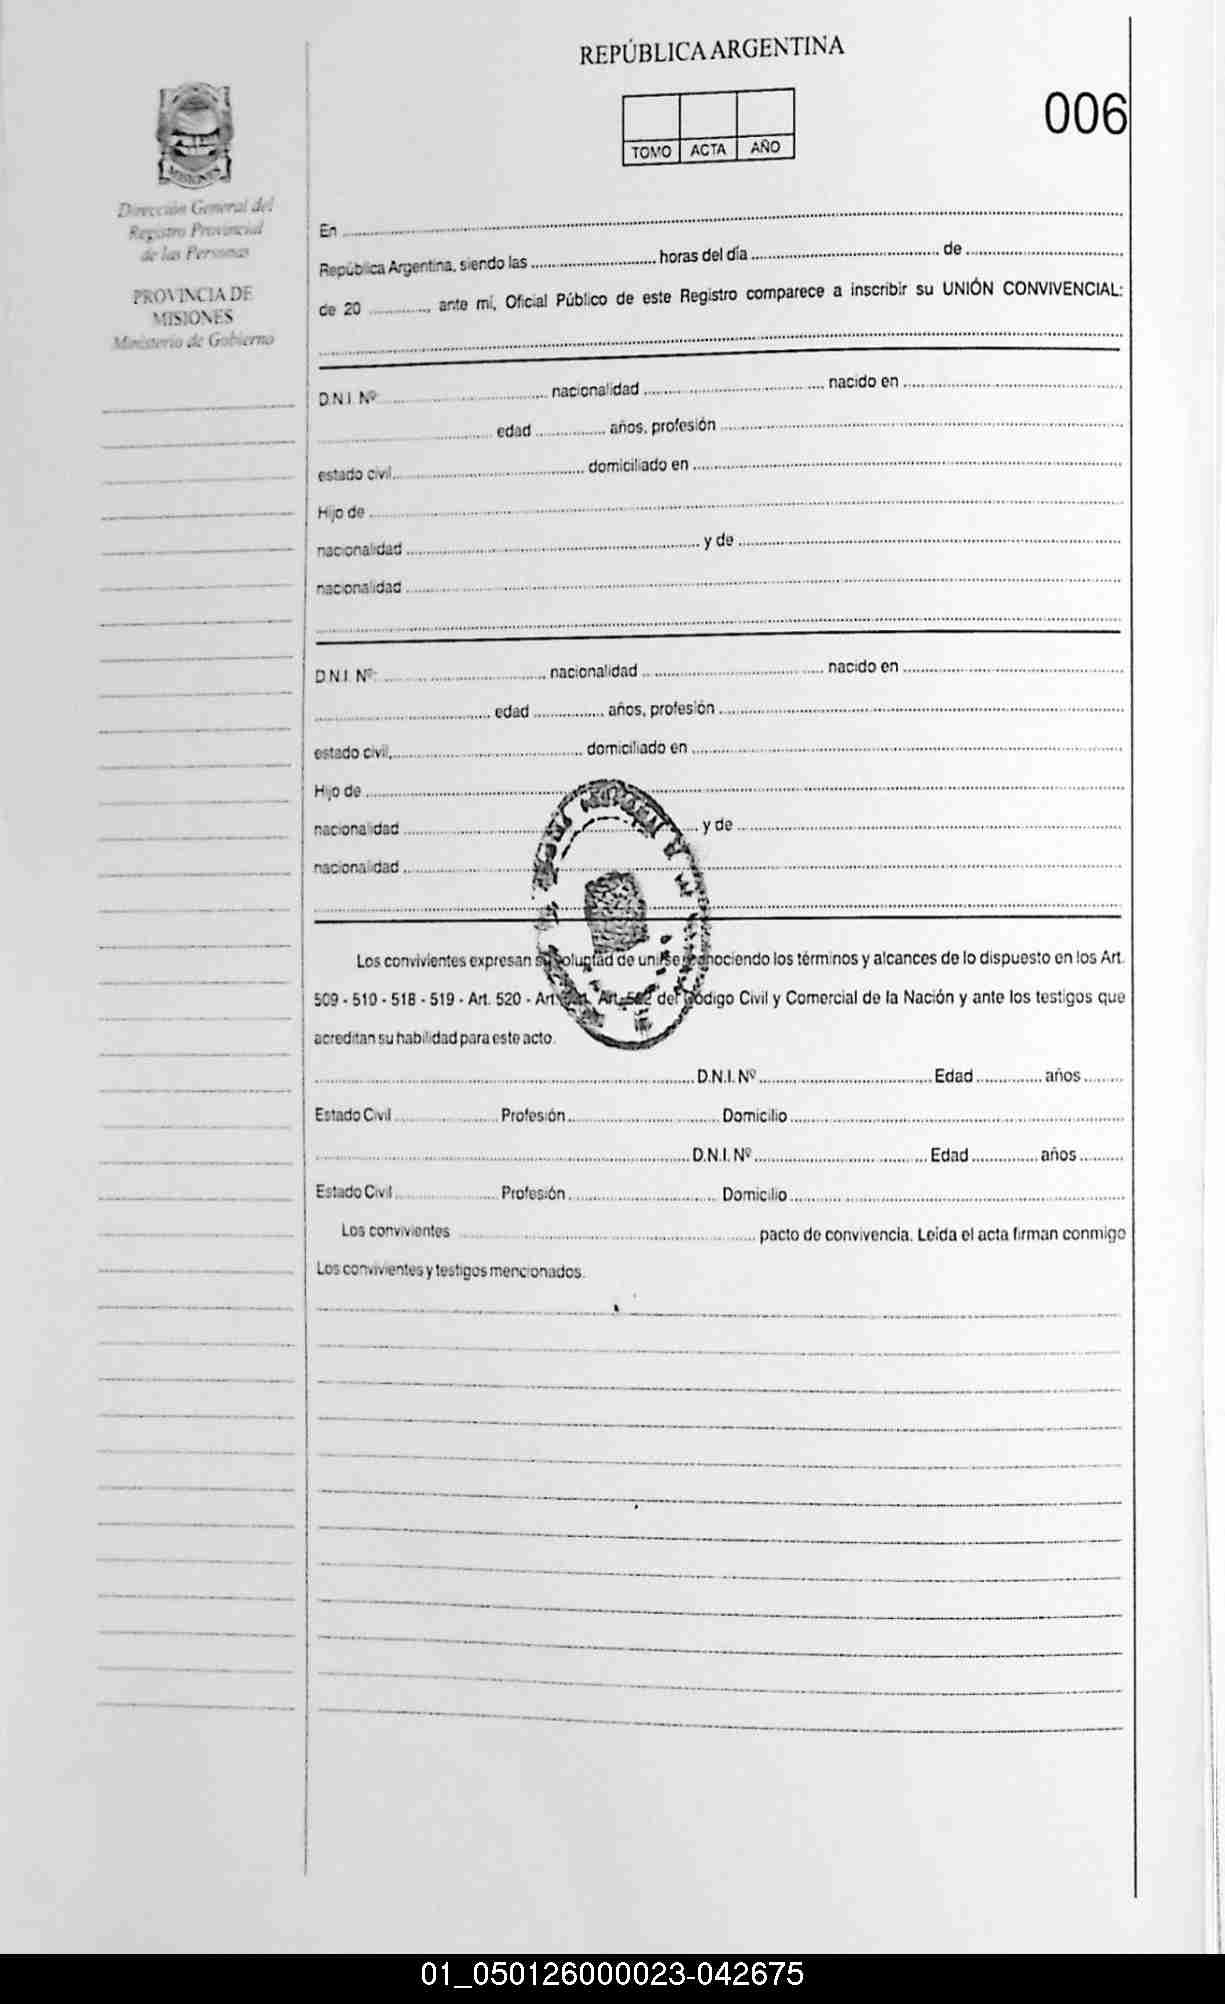 REPÚBLICA ARGENTINA
006
TOMO ACTA AÑO
MISIONES
Dirección General del
Registro Provincial
de las Personas
PROVINCIA DE
MISIONES
Ministerio de Gobierno
En
República Argentina, siendo las horas del día de
de 20 , ante mí, Oficial Público de este Registro comparece a inscribir su UNIÓN CONVIVENCIAL:
D.N.I. Nº nacionalidad nacido en
edad años, profesión
estado civil, domiciliado en
Hijo de
nacionalidad y de
nacionalidad
D.N.I. Nº nacionalidad nacido en
edad años, profesión
estado civil, domiciliado en
Hijo de
nacionalidad y de
nacionalidad
Los convivientes expresan su voluntad de unirse, conociendo los términos y alcances de lo dispuesto en los Art.
509 - 510 - 518 - 519 - Art. 520 - Art. Art. 522 del Código Civil y Comercial de la Nación y ante los testigos que
acreditan su habilidad para este acto.
D.N.I. Nº Edad años
Estado Civil Profesión Domicilio
D.N.I. Nº Edad años
Estado Civil Profesión Domicilio
Los convivientes pacto de convivencia. Leída el acta firman conmigo
Los convivientes y testigos mencionados.
01_050126000023-042675